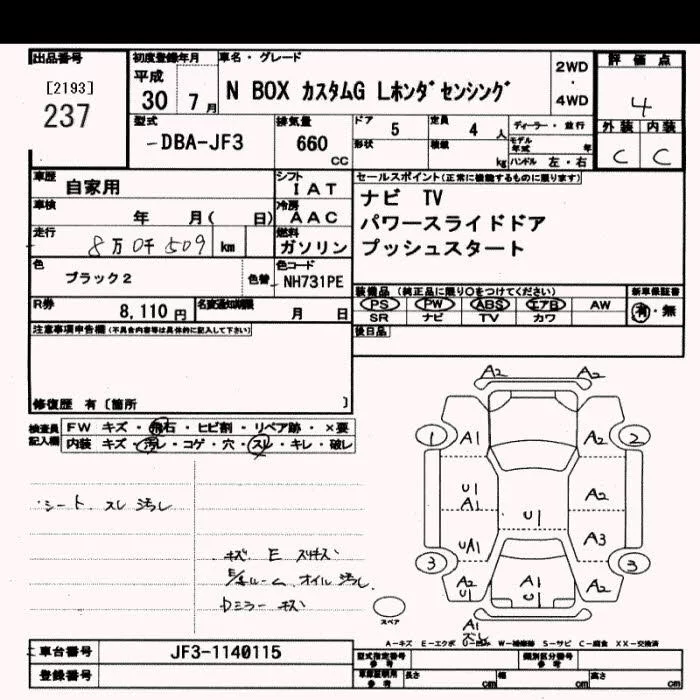 出品番号
[2193]
237
初度登録年月
平成
30 7月
車名・グレード
N BOX カスタムG Lホンダセンシング
2WD
・
4WD
評価点
4
外装 内装
C C
型式
-DBA-JF3
排気量
660
CC
ドア
5
形状
定員
4 人
積載
kg
ディーラー・並行
モデル年式 年
ハンドル 左・右
車歴
自家用
シフト
IAT
車検
年 月( 日)
冷房
AAC
走行
8万0千509 km
燃料
ガソリン
色
ブラック2
色替
色コード
NH731PE
セールスポイント(正常に機能するものに限ります)
ナビ TV
パワースライドドア
プッシュスタート
R券
8,110円
名変通知期限
月 日
装備品 (純正品に限り○をつけてください)
PS PW ABS エアB AW
SR ナビ TV カワ
新車保証書
有・無
後日品
注意事項申告欄(不具合内容等は具体的に記入して下さい)
修復歴 有〔箇所 〕
検査員
記入欄
FW キズ・飛石・ヒビ割・リペア跡・×要
内装 キズ・汚れ・コゲ・穴・スレ・キレ・破レ
・シート、スレ 汚レ
キズ E スリキズ
オイル 汚レ
ミラー キズ
A2 A2
1 A1 A2 2
U1
A1 A2
U1
UA1 A3
3 3
A2
U1 A1
U1 A2
A1
スペア
A-キズ E-エクボ U-凹み W-補修跡 S-サビ C-腐食 XX-交換済
車台番号
JF3-1140115
登録番号
型式指定番号
参考
類別区分番号
参考
車庫証明用
参考
長さ cm
幅 cm
高さ cm